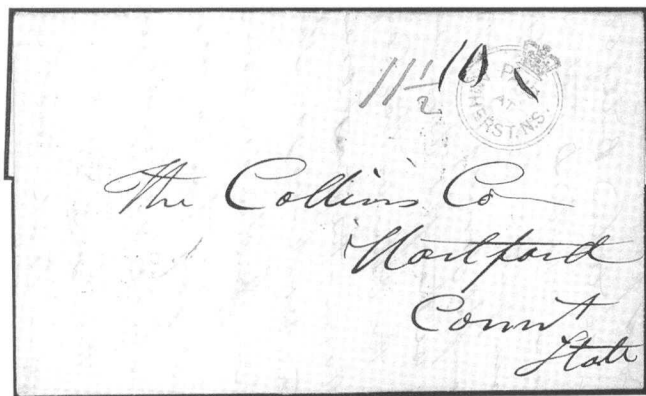 11 1/2 10
PAID AT AMHERST. N.S.
The Collins Co
Hartford
Connt
State